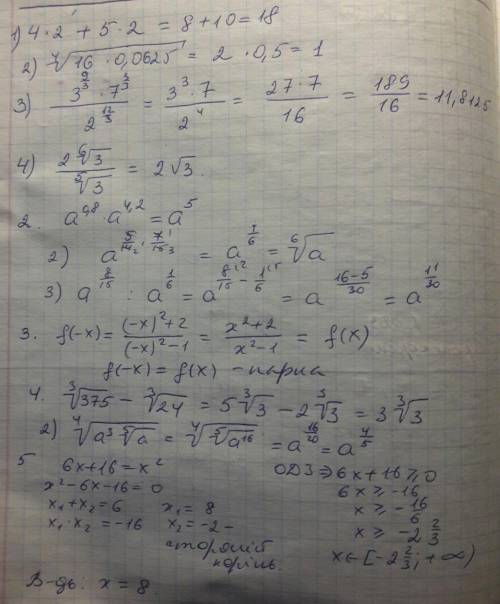 1) 4·2 + 5·2 = 8+10 = 18
2) ⁴√(16·0,0625) = 2·0,5 = 1
3) (3^(9/3)·7^(3/3))/2^(12/3) = (3³·7)/2⁴ = (27·7)/16 = 189/16 = 11,8125
4) (2⁶√3)/(⁵√3) = 2√3.
2. a^0,8 · a^4,2 = a⁵
2) a^(5/14 · 7/15) = a^(1/6) = ⁶√a
3) a^(8/15) : a^(1/6) = a^(8/15 - 1/6) = a^((16-5)/30) = a^(11/30)
3. f(-x) = ((-x)²+2)/((-x)²-1) = (x²+2)/(x²-1) = f(x)
f(-x) = f(x) - парна
4. ³√375 - ³√24 = 5³√3 - 2³√3 = 3³√3
2) ⁴√(a³ ⁵√a) = ⁴√(⁵√a¹⁶) = a^(16/20) = a^(4/5)
5 6x+16 = x²
x²-6x-16=0
x₁+x₂=6 x₁=8
x₁·x₂=-16 x₂=-2 -
сторонній
корінь.
ОДЗ ⇒ 6x+16≥0
6x ≥ -16
x ≥ -16/6
x ≥ -2 2/3
x∈[-2 2/3; +∞)
В-дь: x = 8.